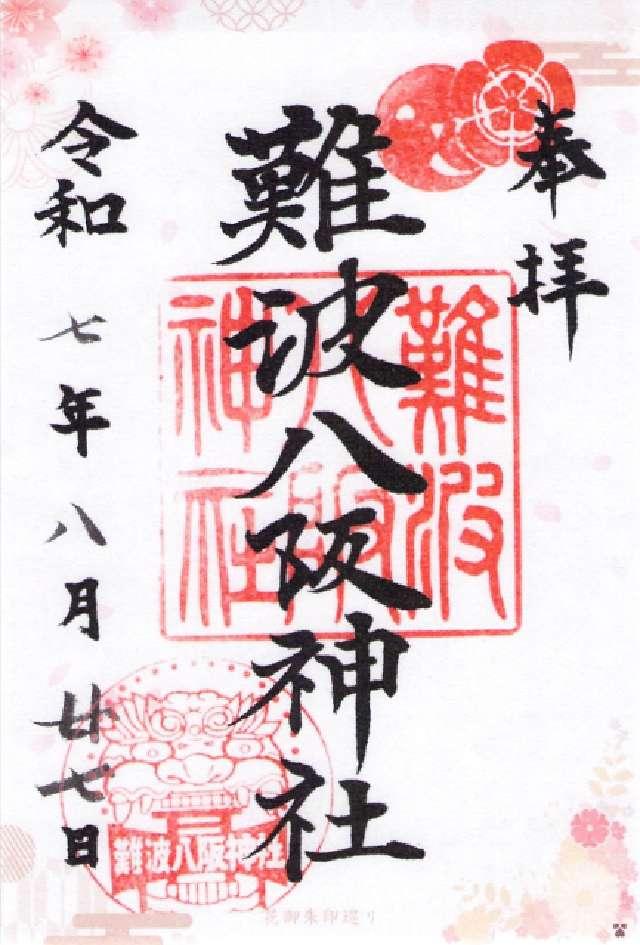 奉拝
難波八阪神社
令和七年八月廿七日
難波
八阪
神社
難波八阪神社
花御朱印巡り